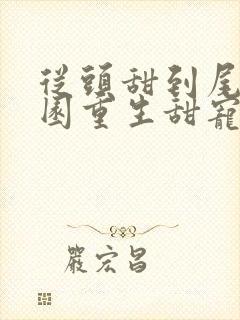 從頭甜到尾
園重生甜寵
嚴宏昌